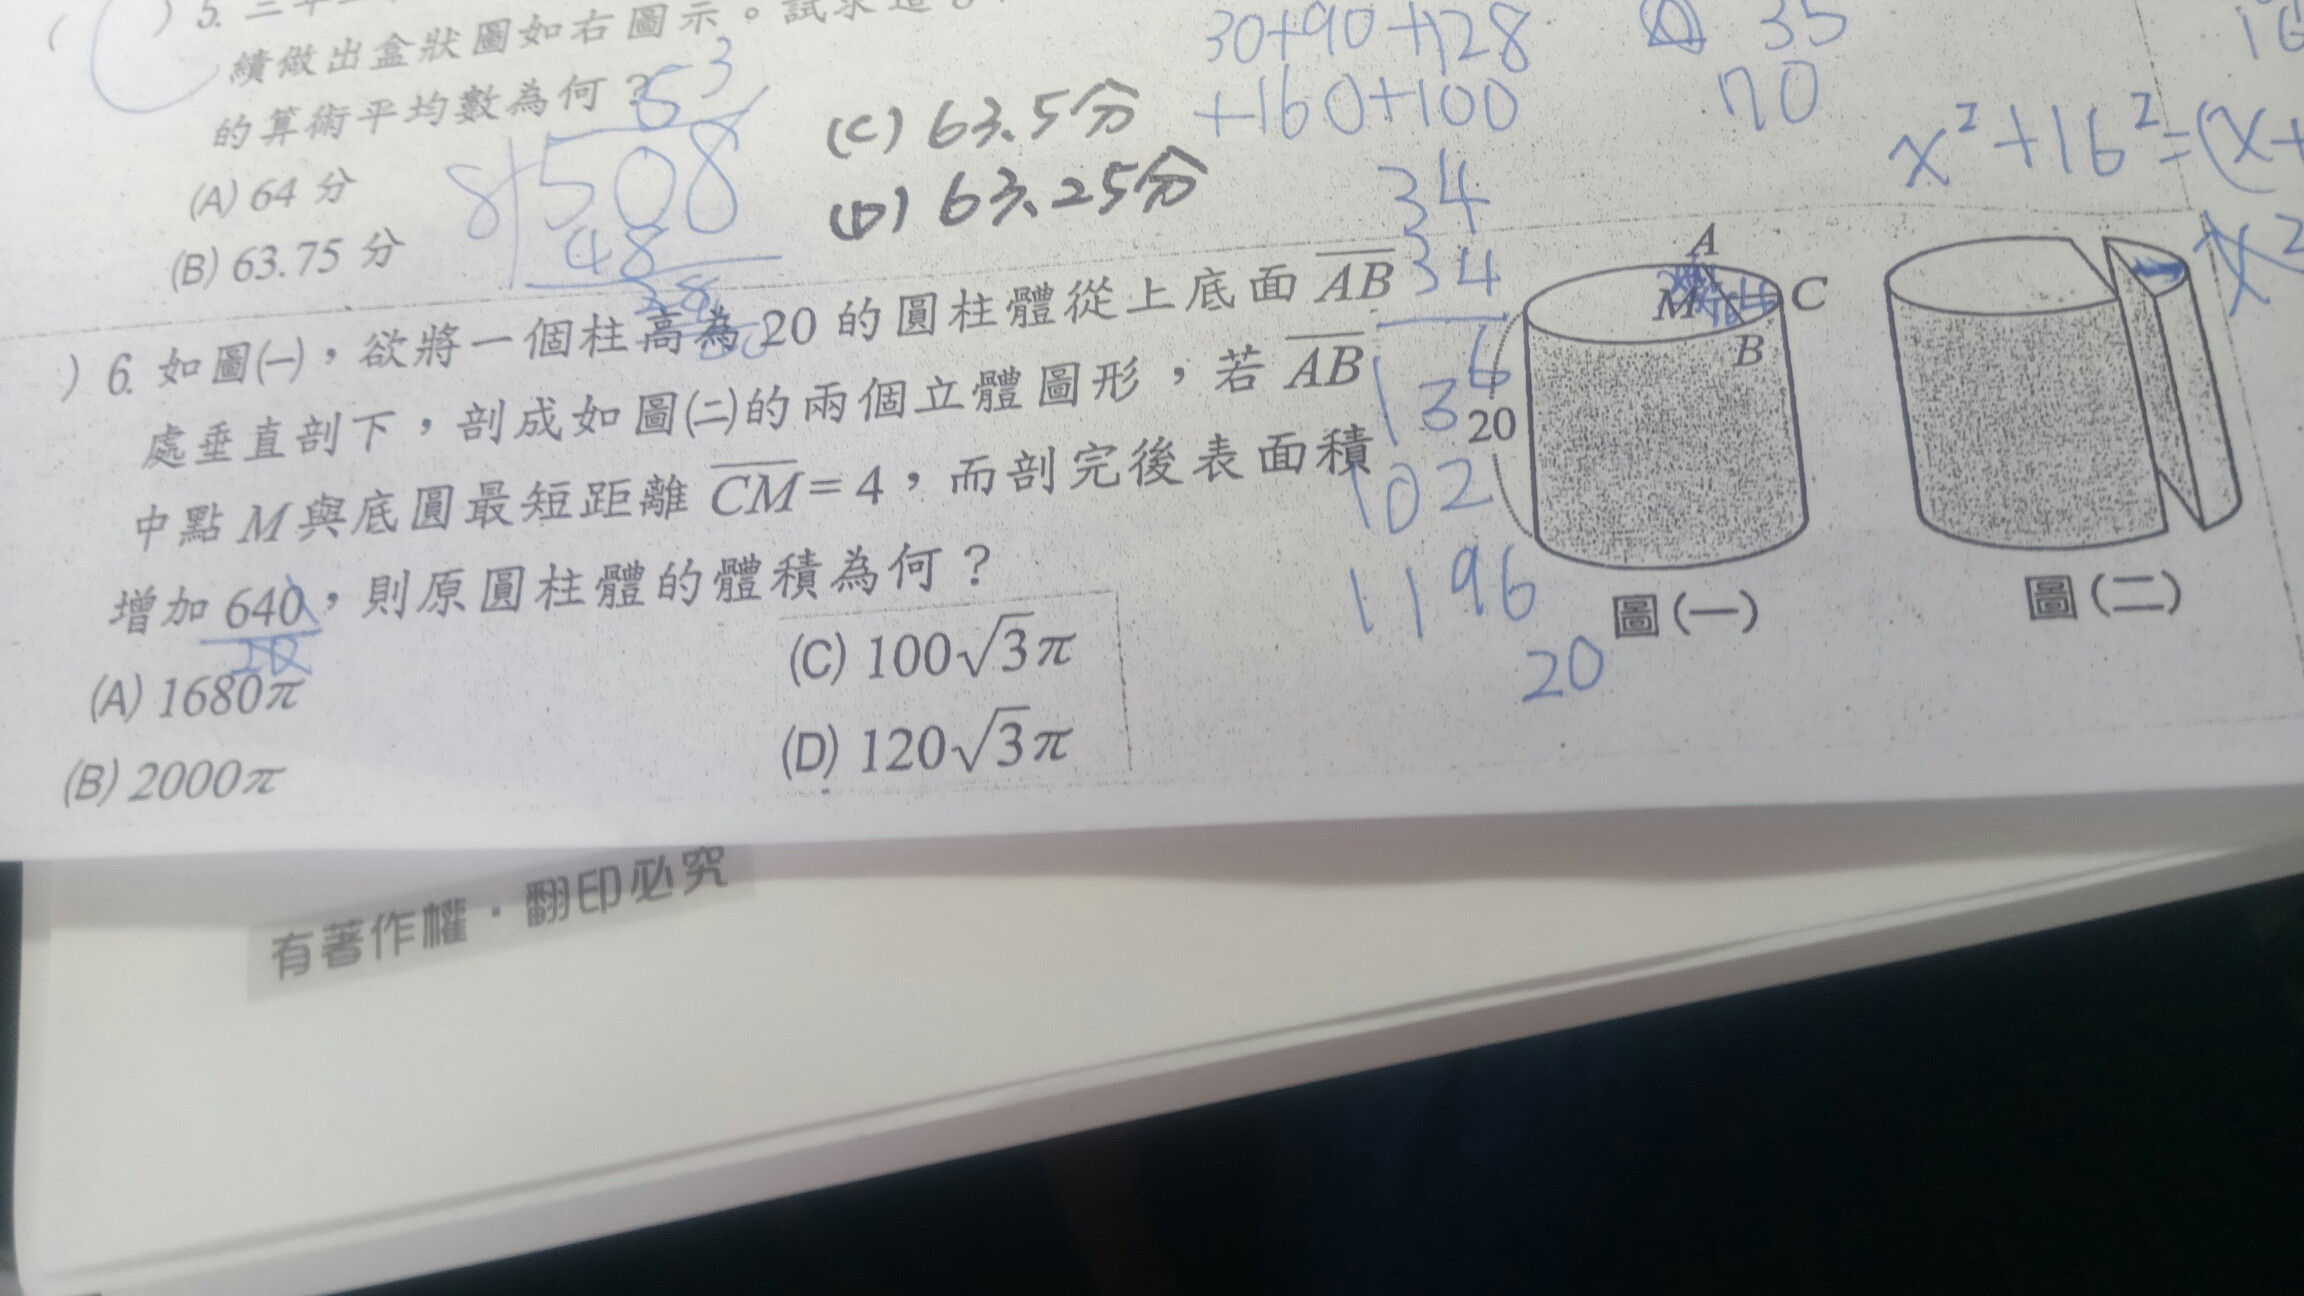 績做出盒狀圖如右圖示。試求這8
的算術平均數為何？
(A) 64 分
(B) 63.75 分
(C) 63.5分
(D) 63.25分
53
8 508
48
30+90+128
+160+100
35
70
34
34
136
102
1196
20
) 6. 如圖㈠，欲將一個柱高為 20 的圓柱體從上底面 AB
處垂直剖下，剖成如圖㈡的兩個立體圖形，若 AB
中點 M 與底圓最短距離 CM = 4，而剖完後表面積
增加 640，則原圓柱體的體積為何？
20
(A) 1680π
(B) 2000π
(C) 100√3π
(D) 120√3π
A
M
C
B
20
圖(一)
圖(二)
有著作權・翻印必究